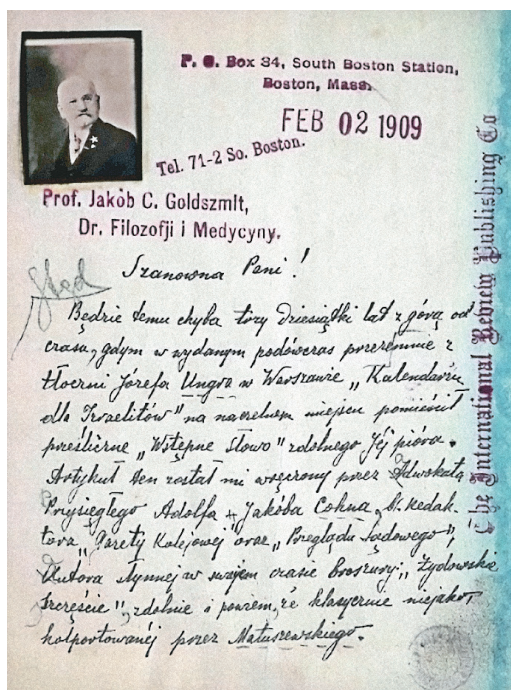 P. O. Box 34, South Boston Station,
Boston, Mass.
FEB 02 1909
Tel. 71-2 So. Boston.
Prof. Jakób C. Goldszmit,
Dr. Filozofji i Medycyny.
The International Review Publishing Co
Szanowna Pani!
Będzie temu chyba trzy dziesiątki lat z górą od
czasu, gdym w wydanym podówczas przezemnie z
tłoczni Józefa Ungra w Warszawie „Kalendarzu
dla Izraelitów" na naczelnem miejscu pomieścił
prześliczne „Wstępne Słowo" zdolnego Jej pióra.
Artykuł ten został mi wręczony przez Adwokata
Przysięgłego Adolfa Jakóba Cohna, b. Redak-
tora „Gazety Kolejowej" oraz „Przeglądu Sądowego",
Autora słynnej w swojem czasie broszury: „Żydowskie
Szczęście", zdolnie i powiem, że klasycznie niejako
kolportowanéj przez Matuszewskiego.